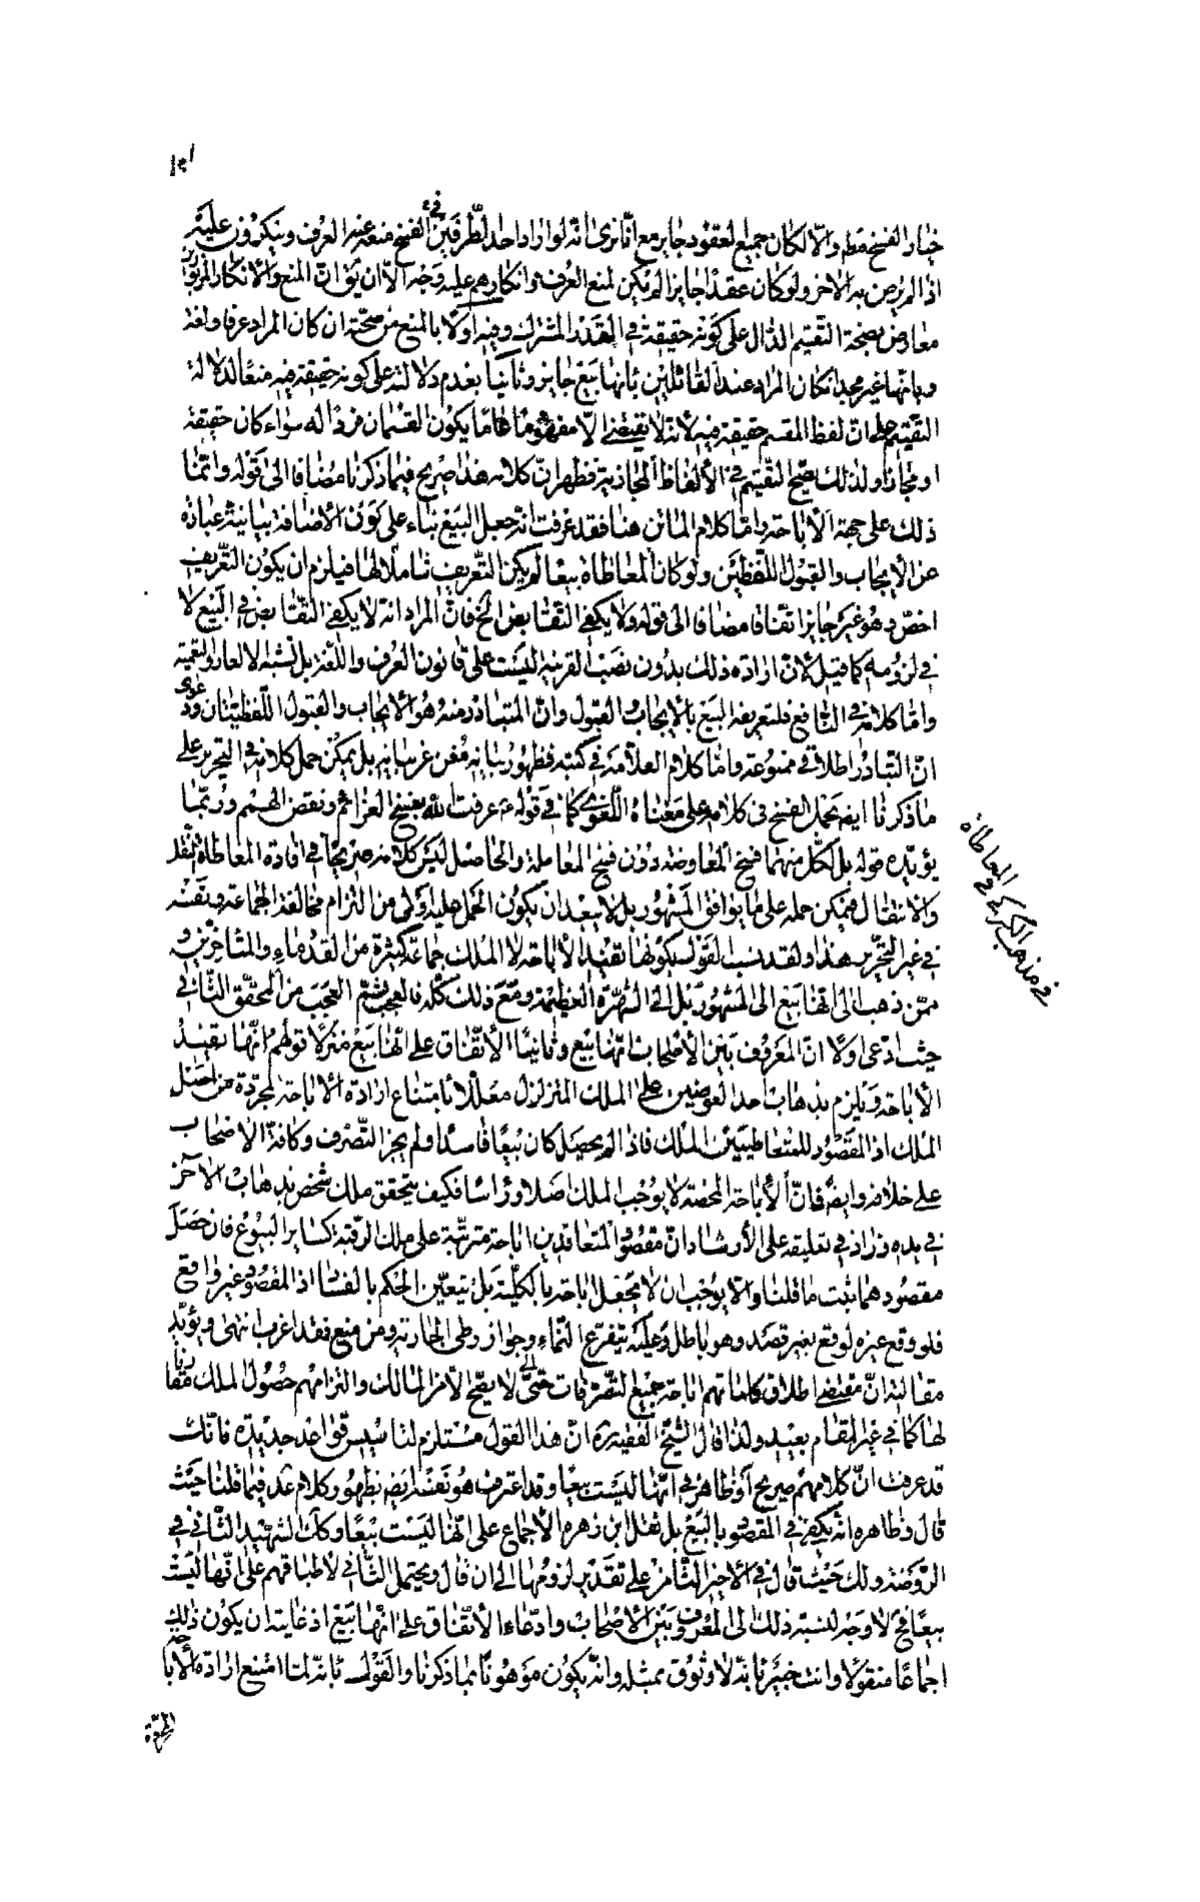 خيار الفسخ فقط والّا لكان جميع العقود جايز مع انّا نرى انّه لو اراد احد الطّرفين الفسخ منعه عنه العرف وينكرون عليه
اذا لم يرض به الاخر ولو كان عقدًا جايزا لم يكن لمنع العرف وانكارهم عليه وجه الّا ان يق انّ المنع والانكار المزبورين
معارض بصحّة التّقسيم الدّال على كونه حقيقة في القدر المشترك وفيه اوّلا بالمنع من صحّته ان كان المراد عرفا ولغة
وبانّها غير مجد ان كان المراد عند القائلين بانها بيع جايز وثانيًا بعدم دلالته على كونه حقيقة فيه منعًا لدلالة
التقسيم على انّ لفظ المقسم حقيقة فيه لانّه لا يقتضي الّا مفهومًا عامًا يكون القسمان فردًا له سواء كان حقيقة
او مجازا ولذلك يصّح التّقسيم في الألفاظ المجازية فظهر انّ كلامه هذا صريح فيما ذكرنا مضافا الى قوله وانّما
ذلك على جهة الاباحة وامّا كلام الماتن هنا فقد عرفت انّه جعل البيع بناء على كون الاضافة بيانية عبارة
عن الايجاب والقبول اللّفظيّين ولو كان المعاطاة بيعًا لم يكن التّعريف شاملًا لها فيلزم ان يكون التّعريف
اخصّ وهو غير جايز اتفاقا مضافا الى قوله ولا يكفي التقابض الخ فانّ المراد انّه لا يكفي التّقابض في البّيع لا
في لزومه كما قيل لانّ ارادة ذلك بدون نصب القرينة ليست على قانون العرف واللّغة بل تشبه الالغاز والتعمية
وامّا كلامه في النّافع فلتعريفه البيع بالايجاب والقبول وانّ المتبادر منه هو الايجاب والقبول اللّفظيّتان ودعوى
انّ التّبادر اطلاقي ممنوعة وامّا كلام العلّامة في كتبه فظهور بيانه مغن عن بيانه بل يمكن حمل كلامه في التحرير على
ما ذكرنا ايضا بحمل الفسخ في كلامه على معناه اللّغوي كما في قوله ع عرفت اللّه بفسخ العزائم ونقض الهمم وربّما
يؤيّده قوله بل لكّل منهما فسخ المعاوضة دون فسخ المعاملة والحاصل ليس كلامه صريحًا في افادة المعاطاة النّقل
والانتقال فيمكن حمله على ما يوافق المشهور بل لا يبعد ان يكون الحمل عليه اولى من التزام مخالفة الجماعة ونفسه
في غير التحّرير هذا ولقد نسب القول بكونها تفيد الأباحة لا الملك جماعة كثيرة من القدماء والمتاخّرين و
ممّن ذهب الى انّها بيع الى المشهور بل الى الشّهرة العظيمة ومع ذلك كلّه فالعجب ثمّ العجب من المحقّق الثّاني
حيث ادّعى اوّلا انّ المعروف بين الأصحاب انّها بيع وثانيًا الأتّفاق على انّها بيع منزلًا قولهم انّها تفيد
الأباحة ويلزم بذهاب احد العوضين على الملك المتزلزل معلّلًا بامتناع ارادة الأباحة المجرّدة من اصل
الملك اذ المقصود للمتعاطيين الملك فاذا لم يحصل كان بيعًا فاسدا ولم يجز التّصرف وكافّة الأصحاب
على خلافه وايضًا فانّ الأباحة المحضة لا يوجب الملك اصلا ورأسا فكيف يتحقق ملك شخص بذهاب الآخر
في يده وزاد في تعليقه على الأرشاد انّ مقصود المتعاقدين اباحة مترتّبة على ملك الرّقبة كساير البيوع فان حصل
مقصودهما ثبت ما قلنا والّا يوجب ان لا يجعل اباحة بالكلّية بل يتعيّن الحكم بالفساد اذ المقصود غير واقع
فلو وقع غيره لوقع بغير قصد وهو باطل وعليه يتفرّع النّماء وجواز وطى الجارية ومن منع فقد اغرب انتهى ويؤيّد
مقالته انّ مقتضى اطلاق كلماتهم اباحة جميع التّصرّفات حتّى الّتي لا يصّح الّا من المالك والتزامهم حصول الملك مقارنا
لها كما في غير المقام بعيد ولذا قال الشّيخ الفقيه ره انّ هذا القول مستلزم لتاسيس قواعد جديدة فانّك
قد عرفت انّ كلامهم صريح او ظاهر في انّها ليست بيعًا وقد اعترف هو نفسه ايضا بظهور كلام عد فيما قلنا حيث
قال وظاهره انّه يكفي في المقصود بالبيع بل نقل ابن زهره الأجماع على انّها ليست بيعًا وكك الشّهيد الثّاني في
الرّوضة وذلك حيث قال في الأخير الثّامن على تقدير لزومها الى ان قال ويحتمل الثّاني لأطباقهم على انّها ليست
بيعًا فح لا وجه لنسبة ذلك الى المعروف بين الأصحاب وادّعاء الأتّفاق على انّها بيع اذ غايته ان يكون ذلك
اجماعًا منقولًا وانت خبير بانّه لا وثوق بمثله وانّه يكون موهونًا بما ذكرنا والقول بانّه لمّا امتنع ارادة الأباحة
المجرّدة
في مذهب الكركي في المعاطاة